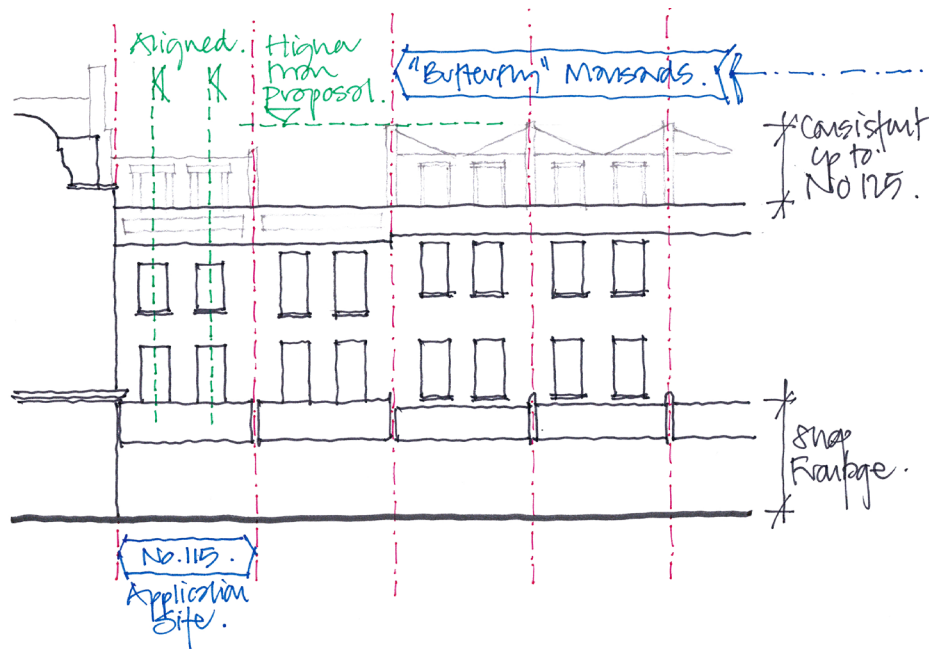 Aligned.
Higher
than
proposal.
"Butterfly" Mansards.
Consistent
up to
No 125.
Shop
Frontage.
No. 115.
Application
Site.